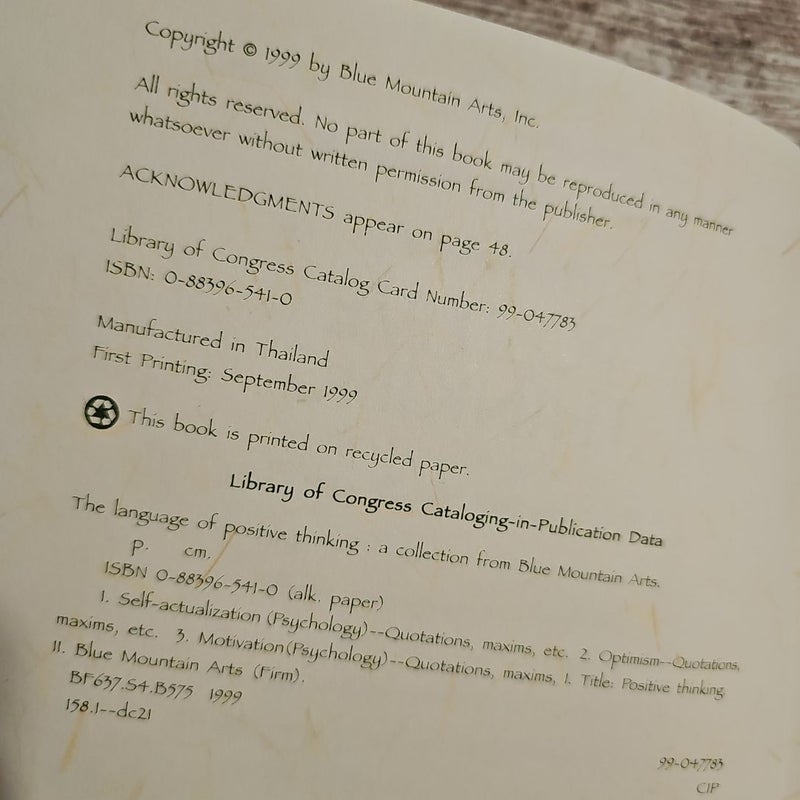 Copyright © 1999 by Blue Mountain Arts, Inc.
All rights reserved. No part of this book may be reproduced in any manner
whatsoever without written permission from the publisher.
ACKNOWLEDGMENTS appear on page 48.
Library of Congress Catalog Card Number: 99-047783
ISBN: 0-88396-541-0
Manufactured in Thailand
First Printing: September 1999
This book is printed on recycled paper.
Library of Congress Cataloging-in-Publication Data
The language of positive thinking : a collection from Blue Mountain Arts.
p. cm.
ISBN 0-88396-541-0 (alk. paper)
1. Self-actualization (Psychology)--Quotations, maxims, etc. 2. Optimism--Quotations,
maxims, etc. 3. Motivation (Psychology)--Quotations, maxims, I. Title: Positive thinking
II. Blue Mountain Arts (Firm).
BF637.S4.B575 1999
158.1--dc21
99-047783
CIP